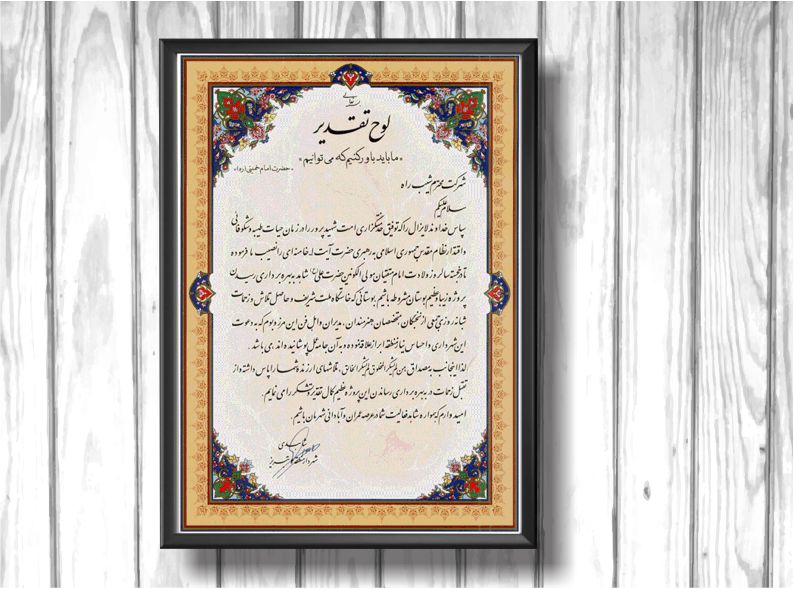 بسمه تعالی
لوح تقدیر
«ما باید باور کنیم که می توانیم»
«حضرت امام خمینی (ره)»
شرکت محترم شیب راه
سلام علیکم
سپاس خداوند لایزال را که توفیق خدمتگزاری امت شهید پرور را در زمان حیات طیبه و شکوفائی
و اقتدار نظام مقدس جمهوری اسلامی به رهبری حضرت آیت ا... خامنه ای را نصیب ما فرموده
تا در خجسته سالروز ولادت امام متقیان مولی الکونین حضرت علی (ع) شاهد به بهره برداری رسیدن
پروژه زیبا و عظیم بوستان مشروطه باشیم. بوستانی که خاستگاه ملت شریف و حاصل تلاش و زحمات
شبانه روزی جمعی از نخبگان، متخصصان، هنرمندان، مدیران و اهل فن این مرز و بوم که به دعوت
این شهرداری و احساس نیاز منطقه ابراز علاقه نموده و به آن جامه عمل پوشانیده اند، می باشد.
لذا اینجانب به مصداق «من لم یشکر المخلوق لم یشکر الخالق»، تلاشهای ارزنده شما را پاس داشته و از
تقبل زحمات در به بهره برداری رساندن این پروژه عظیم کمال تقدیر و تشکر را می نمایم.
امید وارم که همواره شاهد فعالیت شما در عرصه عمران و آبادانی شهرمان باشیم.
شهردار منطقه تبریز